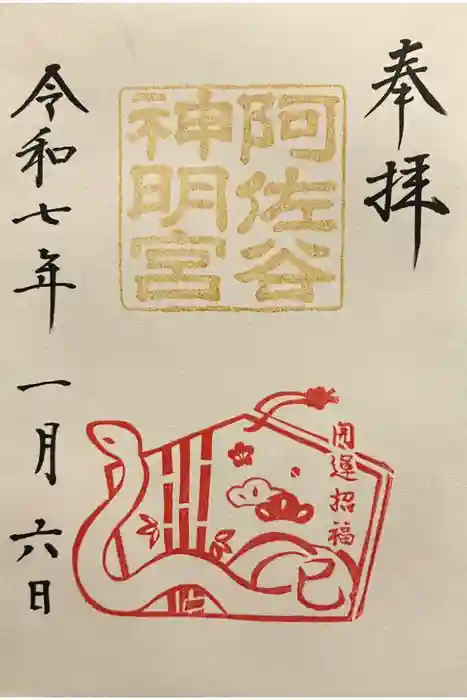 奉拝
阿佐谷
神明宮
開運招福
巳
令和七年 一月 六日